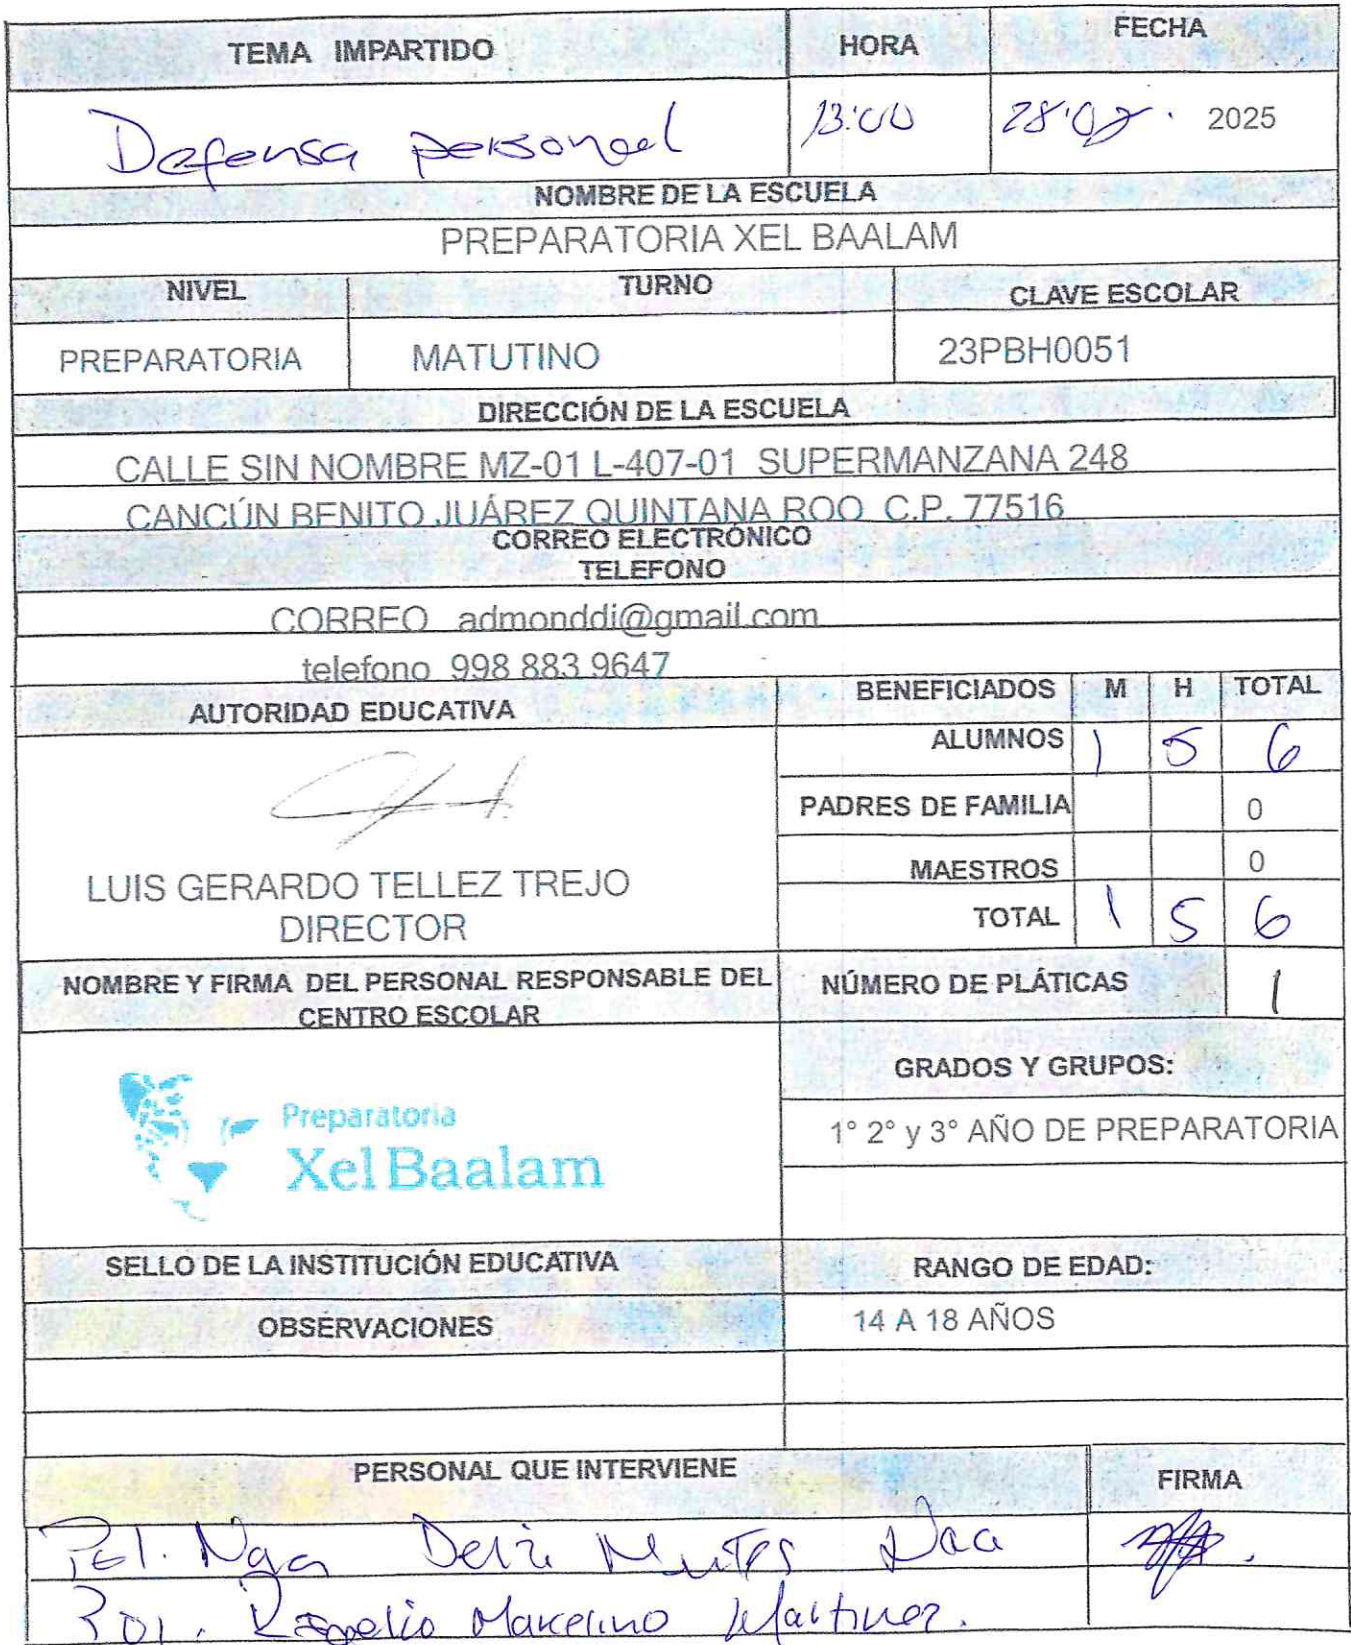 TEMA IMPARTIDO HORA FECHA
Defensa personal 13:00 28.07. 2025
NOMBRE DE LA ESCUELA
PREPARATORIA XEL BAALAM
NIVEL TURNO CLAVE ESCOLAR
PREPARATORIA MATUTINO 23PBH0051
DIRECCIÓN DE LA ESCUELA
CALLE SIN NOMBRE MZ-01 L-407-01 SUPERMANZANA 248
CANCÚN BENITO JUÁREZ QUINTANA ROO C.P. 77516
CORREO ELECTRÓNICO
TELEFONO
CORREO admonddi@gmail.com
telefono 998 883 9647
AUTORIDAD EDUCATIVA BENEFICIADOS M H TOTAL
ALUMNOS 1 5 6
PADRES DE FAMILIA 0
MAESTROS 0
LUIS GERARDO TELLEZ TREJO
DIRECTOR
TOTAL 1 5 6
NOMBRE Y FIRMA DEL PERSONAL RESPONSABLE DEL
CENTRO ESCOLAR
NÚMERO DE PLÁTICAS 1
GRADOS Y GRUPOS:
1° 2° y 3° AÑO DE PREPARATORIA
Preparatoria
Xel Baalam
SELLO DE LA INSTITUCIÓN EDUCATIVA RANGO DE EDAD:
OBSERVACIONES 14 A 18 AÑOS
PERSONAL QUE INTERVIENE FIRMA
Pol.
Pol. Rogelio Marcelino Martinez.